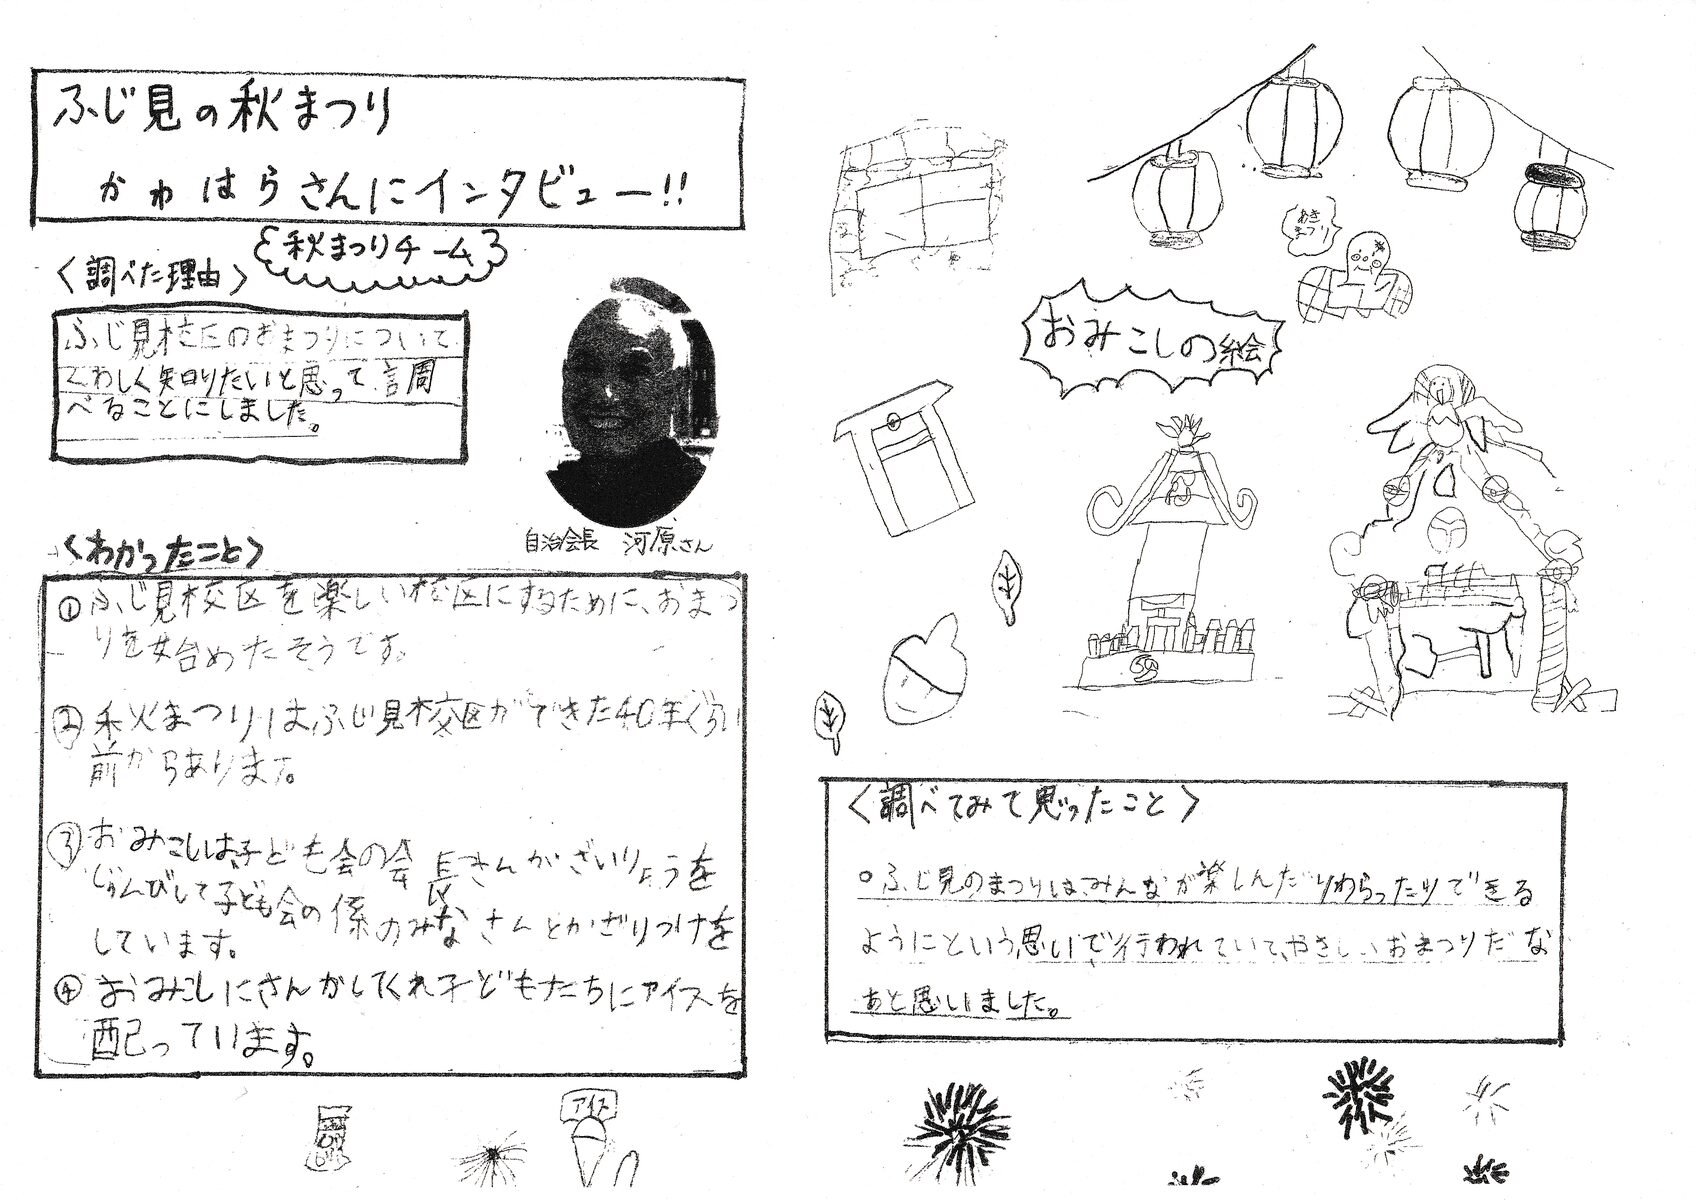 ふじ見の秋まつり
かわはらさんにインタビュー!!
秋まつりチーム
〈調べた理由〉
ふじ見校区のおまつりについて
くわしく知りたいと思って調
べることにしました。
自治会長 河原さん
〈わかったこと〉
①ふじ見校区を楽しい校区にするために、おまつ
りを始めたそうです。
②秋まつりはふじ見校区ができた40年ぐらい
前からあります。
③おみこしは、子ども会の会長さんがざいりょうを
じゅんびして子ども会の係のみなさんとかざりつけを
しています。
④おみこしにさんかしてくれ子どもたちにアイスを
配っています。
アイス
あき
まつり
おみこしの絵
〈調べてみて思ったこと〉
○ふじ見のまつりは、みんなが楽しんだりわらったりできる
ようにという思いで行われていて、やさしいおまつりだな
あと思いました。